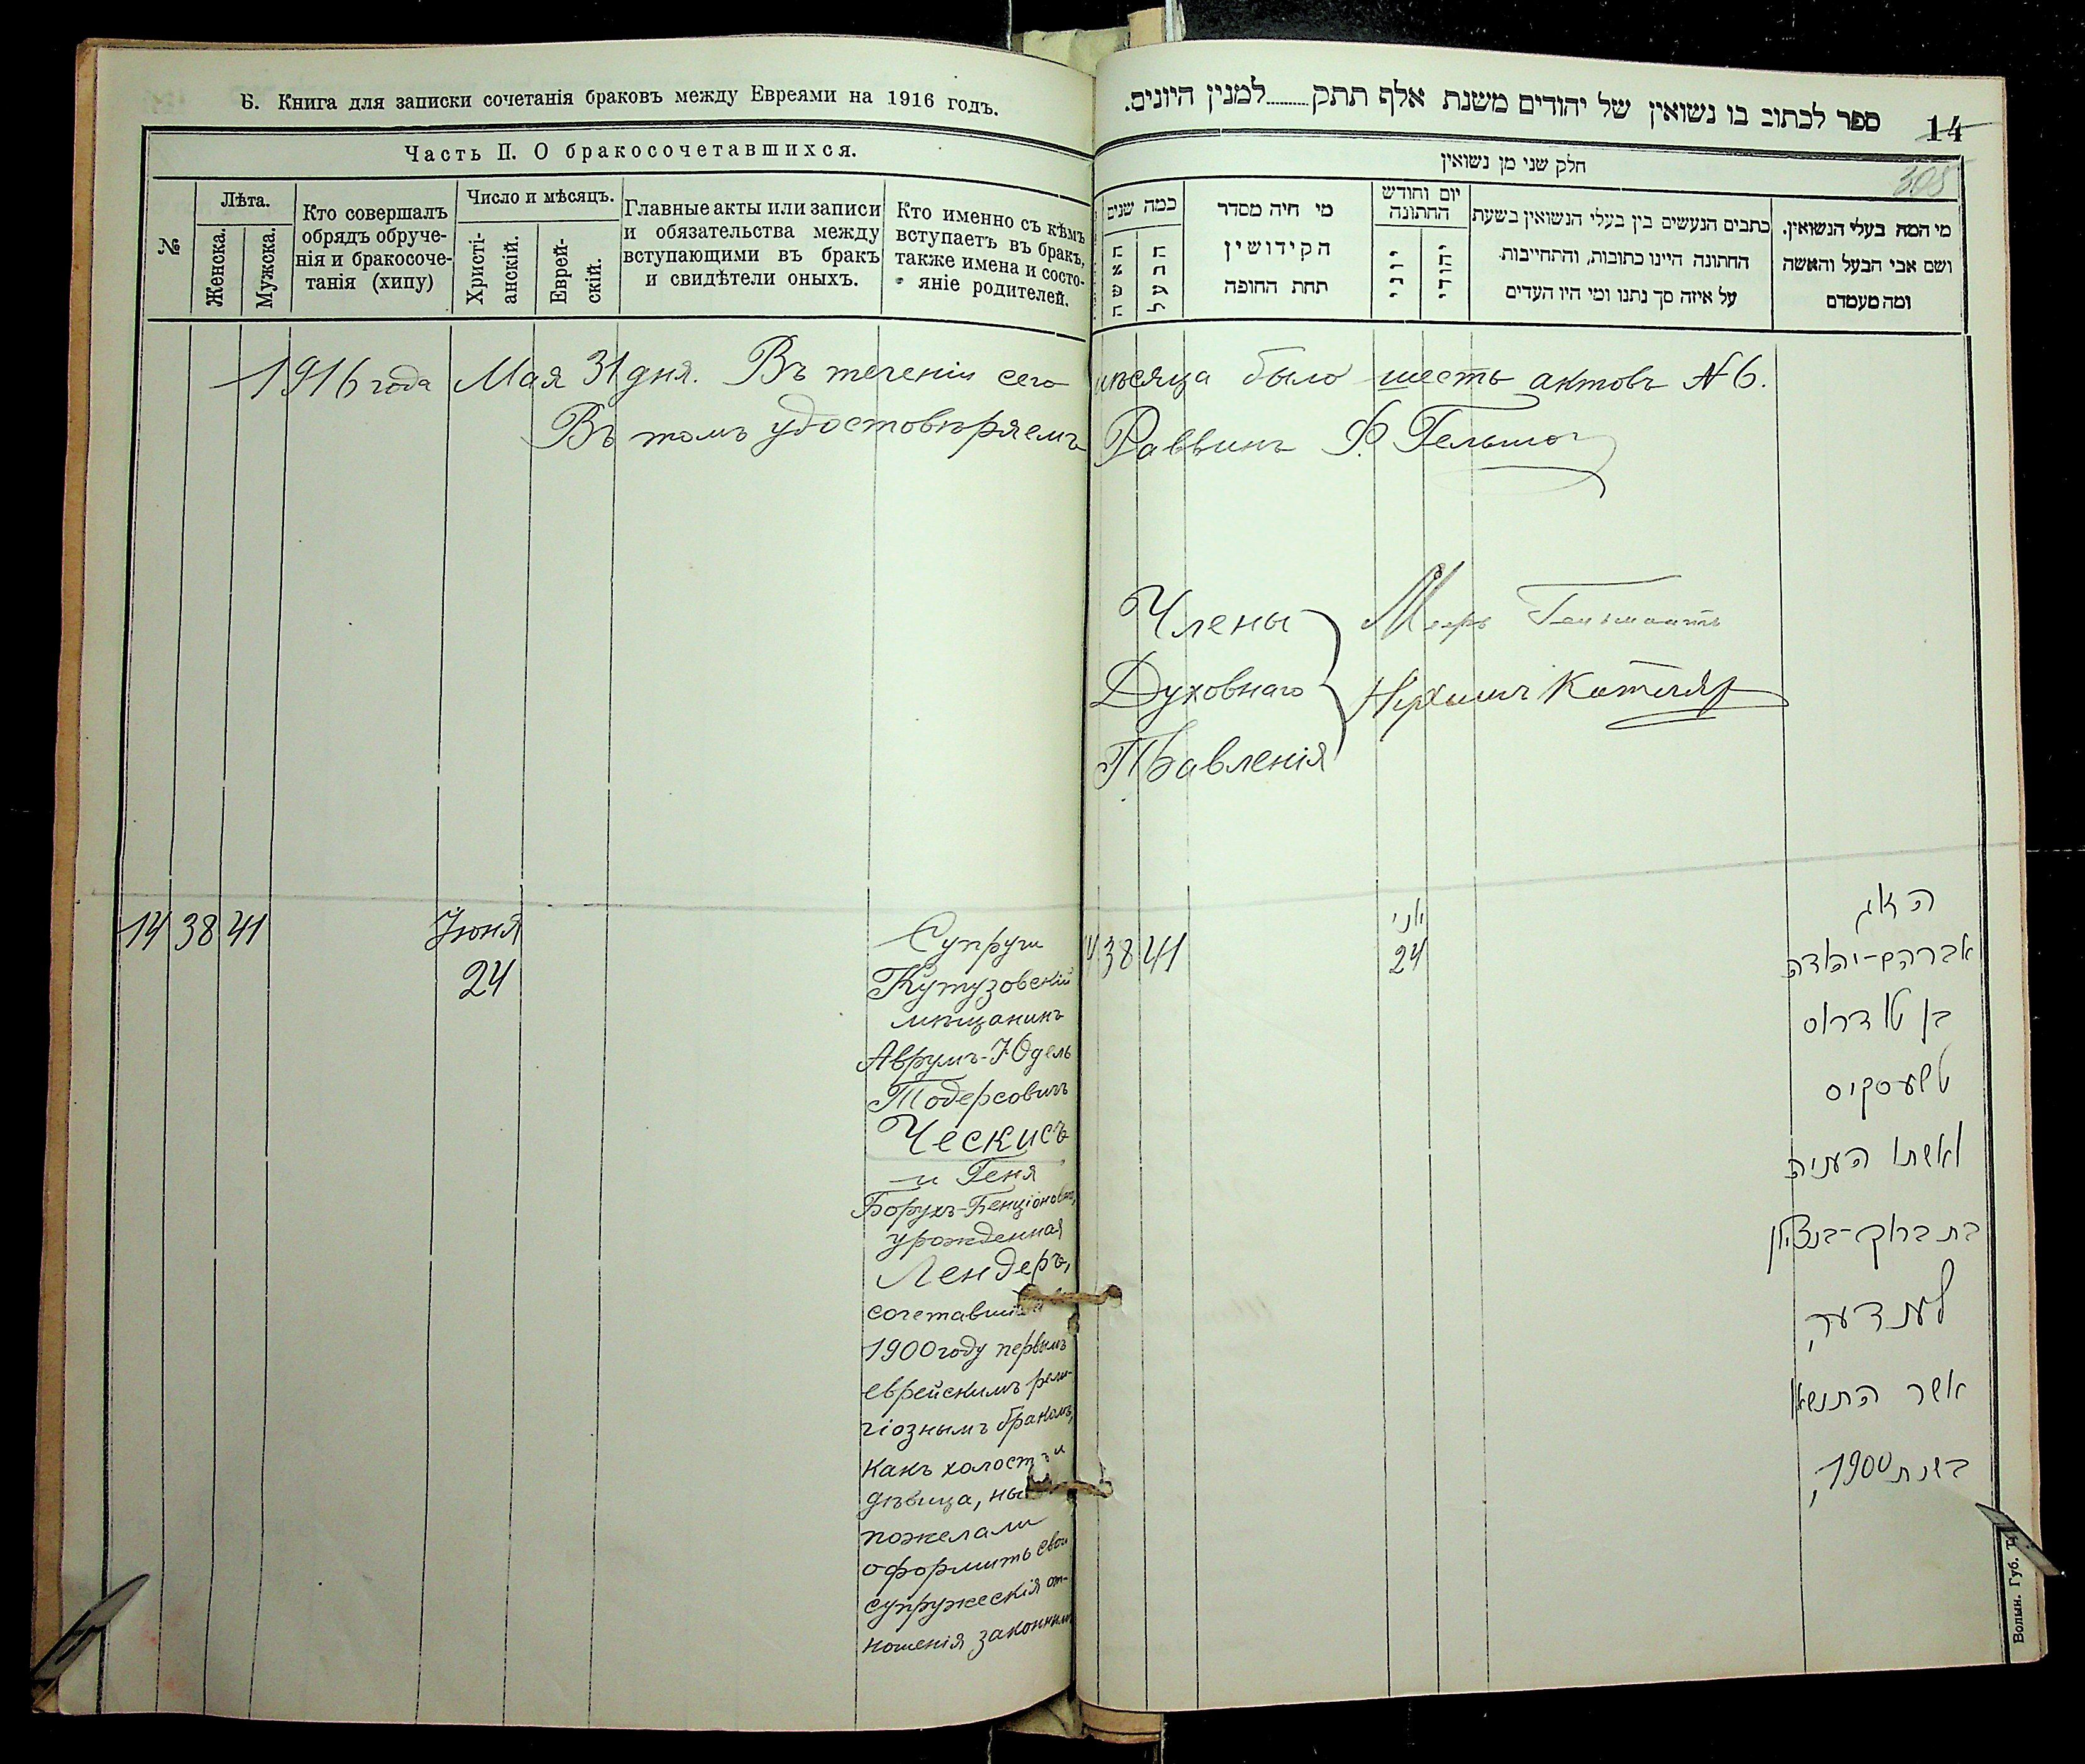 Б. Книга для записки сочетанія браковъ между Евреями на 1916 годъ.
Часть II. О бракосочетавшихся.
№
Лѣта.
Женска.
Мужска.
Кто совершалъ
обрядъ обруче-
нія и бракосоче-
танія (хипу)
Число и мѣсяцъ.
Христі-
анскій.
Еврей-
скій.
Главные акты или записи
и обязательства между
вступающими въ бракъ
и свидѣтели оныхъ.
Кто именно съ кѣмъ
вступаетъ въ бракъ,
также имена и состо-
яніе родителей.
1916 года Мая 31 дня. Въ теченіи сего
Въ томъ удостовѣряемъ
14 38 41
Іюня
24
Супруги
Кутузовскій
мѣщанинъ
Аврумъ-Юдель
Тодерсовичъ
Ческисъ
и Геня
Борухъ-Бенціоновна,
урожденная
Лендеръ,
1900 году первымъ
еврейскимъ рели-
гіознымъ бракомъ,
какъ холост и
дѣвица,
пожелали
оформить свои
супружескія от-
ношенія законным
ספר לכתוב בו נשואין של יהודים משנת אלף תתק.........למנין היונים.
14
308
חלק שני מן נשואין
כמה שנים
האשה
הבעל
מי היה מסדר
הקידושין
תחת החופה
יום וחודש
החתונה
יוני
יהודי
כתבים הנעשים בין בעלי הנשואין בשעת
החתונה היינו כתובות, והתחייבות
על איזה סך נתנו ומי היו העדים
מי המה בעלי הנשואין.
ושם אבי הבעל והאשה
ומה מעמדם
мѣсяца было шесть актовъ № 6.
Раввинъ Ф. Гельмо
Члены
Духовнаго
Правленія
38 41
יוני
24
הזוג
אברהם-יהודה
בן טודרוס
טשעסקיס
ואשתו העניה
בת ברוך-בנציון
לענדער,
אשר התנשאו
בשנת 1900,
Волын. Губ. Т